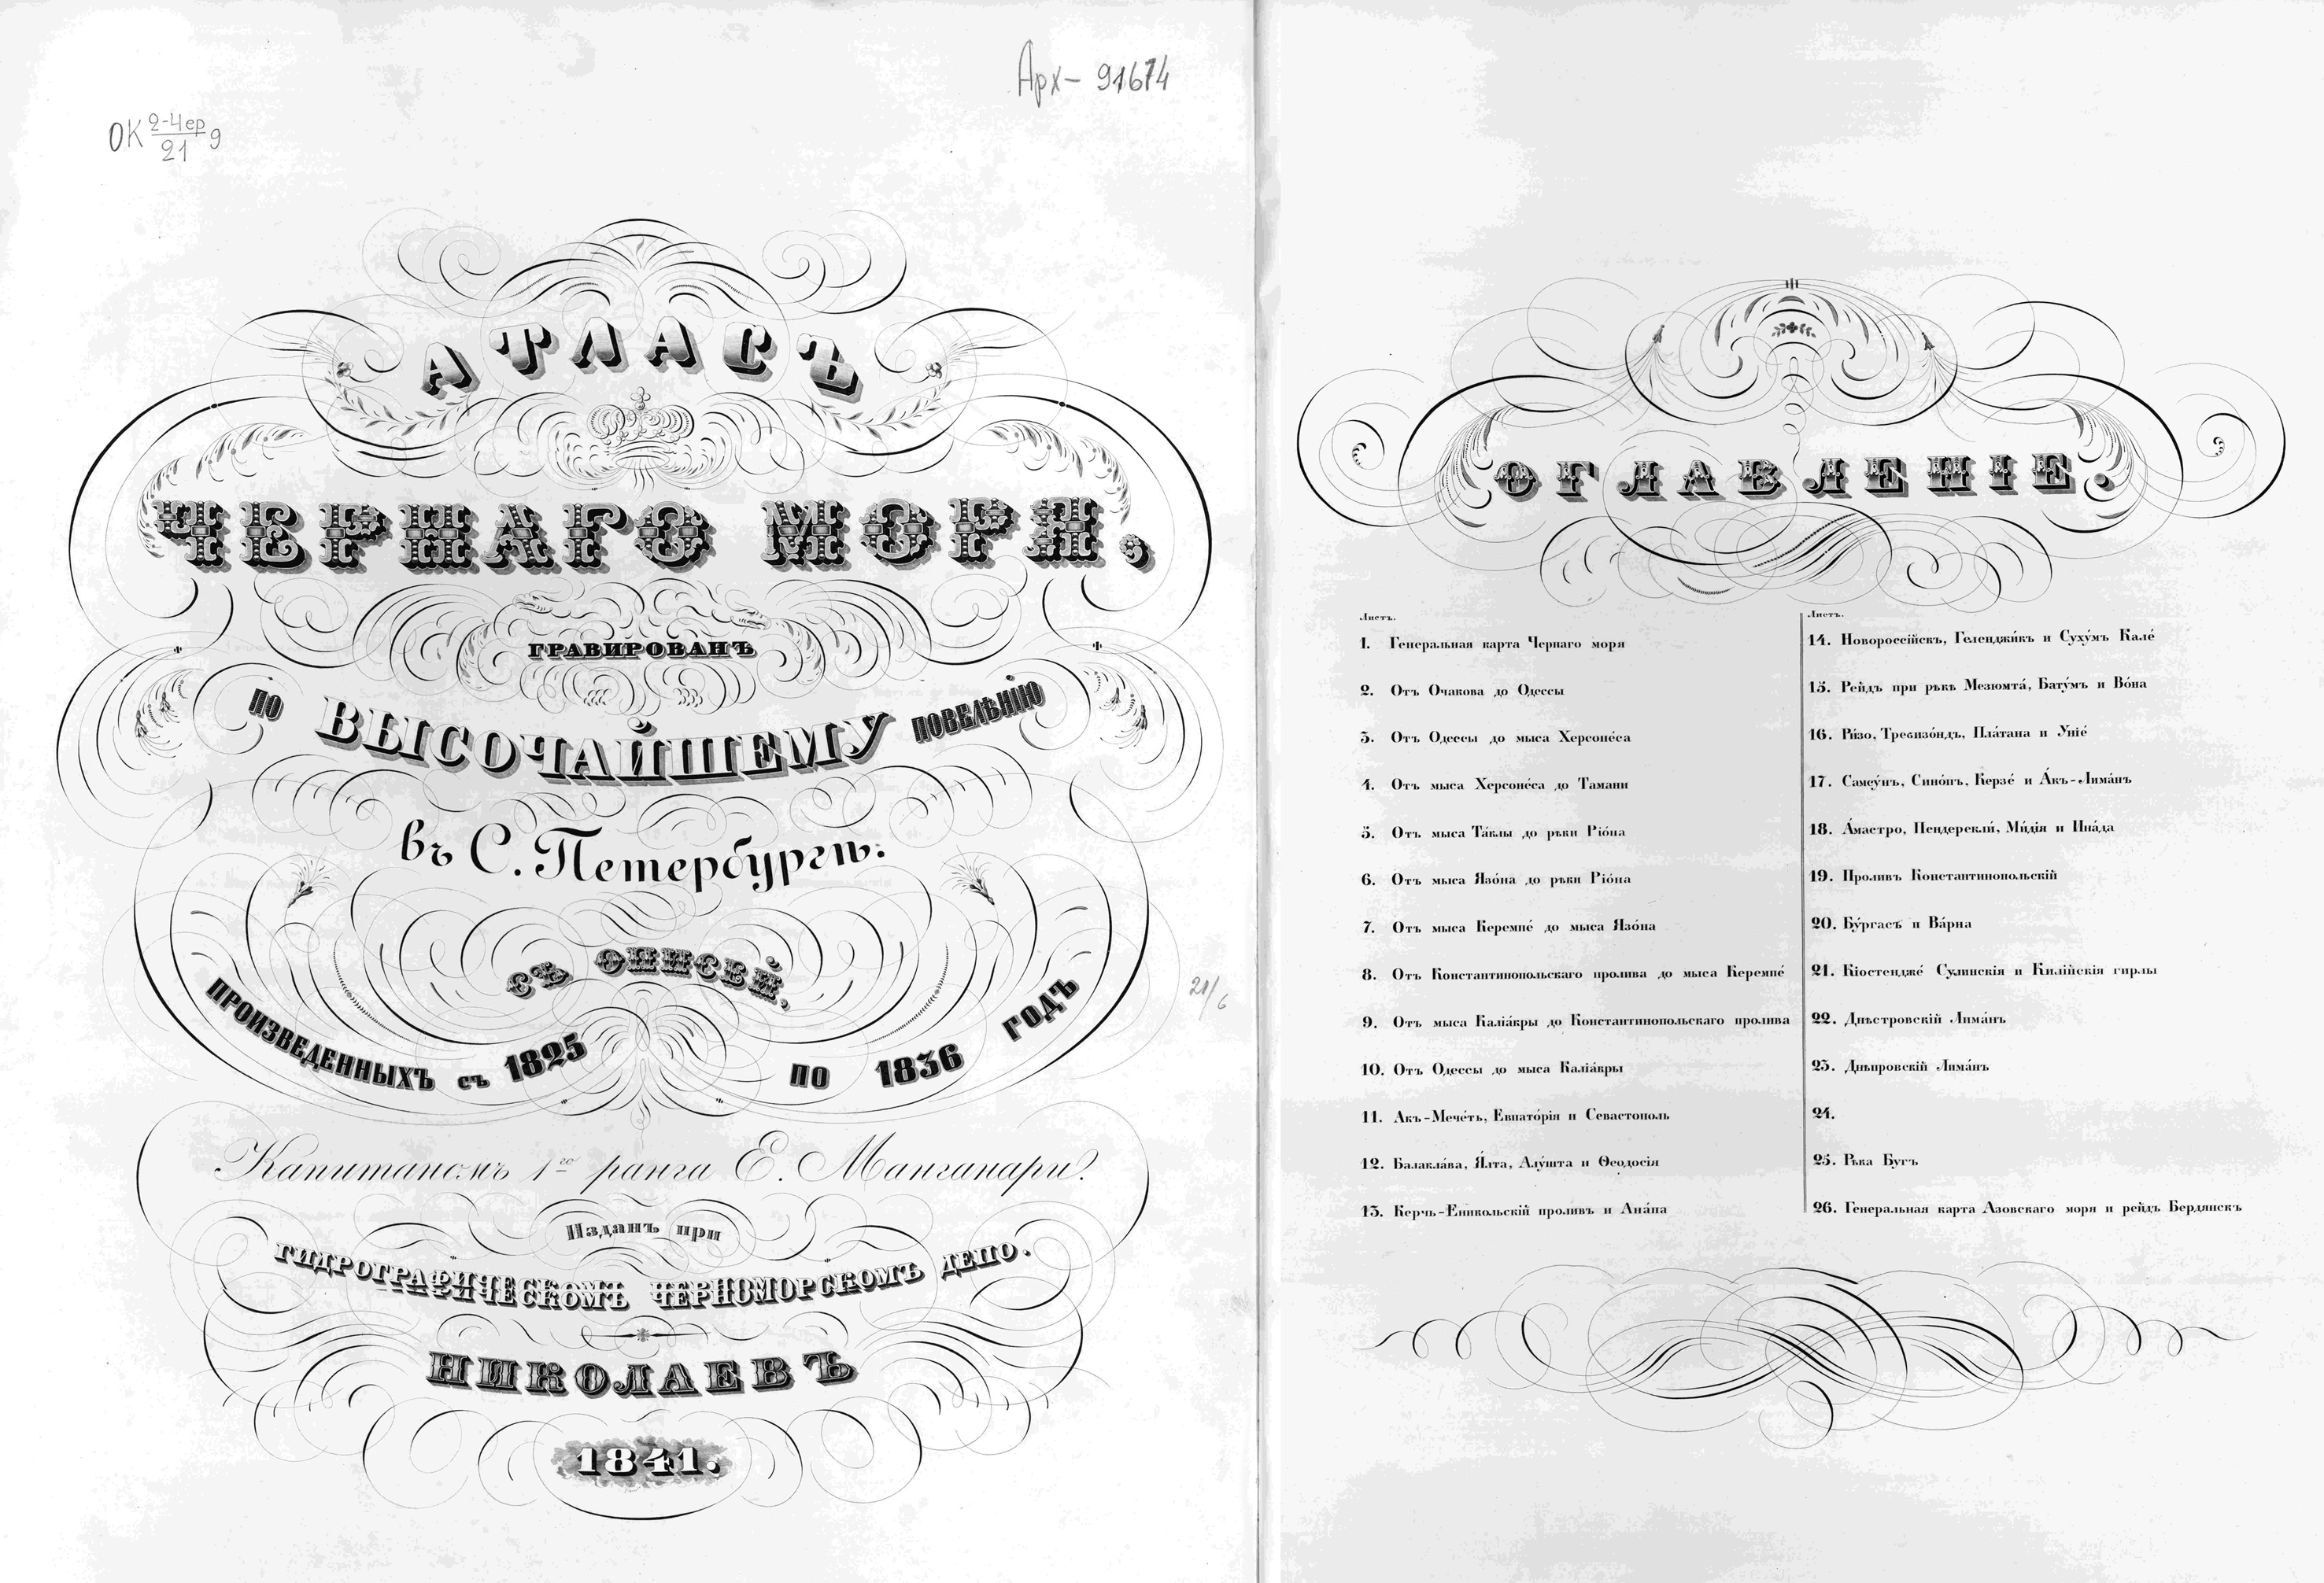 Арх- 91674
ОК 2-Чер/21 9
АТЛАСЪ
ЧЕРНАГО МОРЯ,
ГРАВИРОВАНЪ
ПО ВЫСОЧАЙШЕМУ ПОВЕЛѢНІЮ
въ С. Петербургѣ:
СЪ ОПИСЕЙ,
ПРОИЗВЕДЕННЫХЪ съ 1825 ПО 1836 ГОДЪ
Капитаномъ 1го ранга Е. Манганари.
Изданъ при
ГИДРОГРАФИЧЕСКОМЪ ЧЕРНОМОРСКОМЪ ДЕПО.
НИКОЛАЕВЪ
1841.
21/6
ОГЛАВЛЕНІЕ.
Листъ.
1. Генеральная карта Чернаго моря
2. Отъ Очакова до Одессы
3. Отъ Одессы до мыса Херсоне́са
4. Отъ мыса Херсоне́са до Тамани
5. Отъ мыса Та́клы до рѣки Ріо́на
6. Отъ мыса Язо́на до рѣки Ріо́на
7. Отъ мыса Керемпе́ до мыса Язо́на
8. Отъ Константинопольскаго пролива до мыса Керемпе́
9. Отъ мыса Каліа́кры до Константинопольскаго пролива
10. Отъ Одессы до мыса Каліа́кры
11. Акъ-Мече́ть, Евпато́рія и Севастополь
12. Балакла́ва, Я́лта, Алу́шта и Ѳеодосія
13. Керчь-Еникольскій проливъ и Ана́па
Листъ.
14. Новороссійскъ, Геленджи́къ и Суху́мъ Кале́
15. Рейдъ при рѣкѣ Мезюмта́, Бату́мъ и Во́на
16. Ри́зо, Тревизо́ндъ, Пла́тана и Уніе́
17. Самсу́нъ, Сино́пъ, Керзе́ и А́къ-Лима́нъ
18. А́мастро, Пендерекли́, Ми́дія и Ина́да
19. Проливъ Константинопольскій
20. Бу́ргасъ и Ва́рна
21. Кіостендже́ Сулинскія и Килійскія гирлы
22. Днѣстровскій Лима́нъ
23. Днѣпровскій Лима́нъ
24.
25. Рѣка Бугъ
26. Генеральная карта Азовскаго моря и рейдъ Бердянскъ